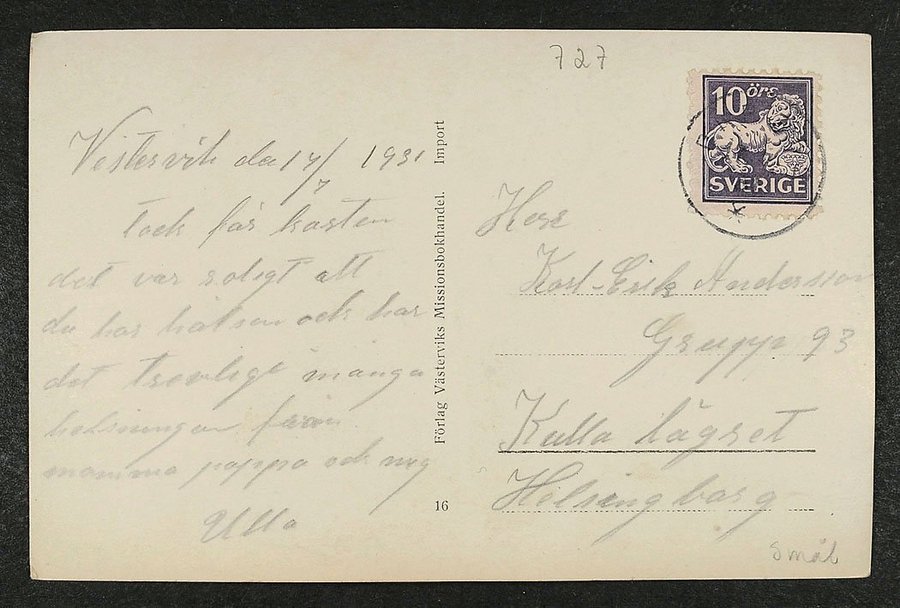 727
10 öre
SVERIGE
Vestervik den 17/7 1931
Tack får korten
det var roligt att
du har hälsan och har
det trevligt många
helsningar från
mamma pappa och mig
Ulla
Förlag Västerviks Missionsbokhandel. Import
16
Herr
Karl-Erik Andersson
Grupp 93
Kulla lägret
Helsingborg
Smål